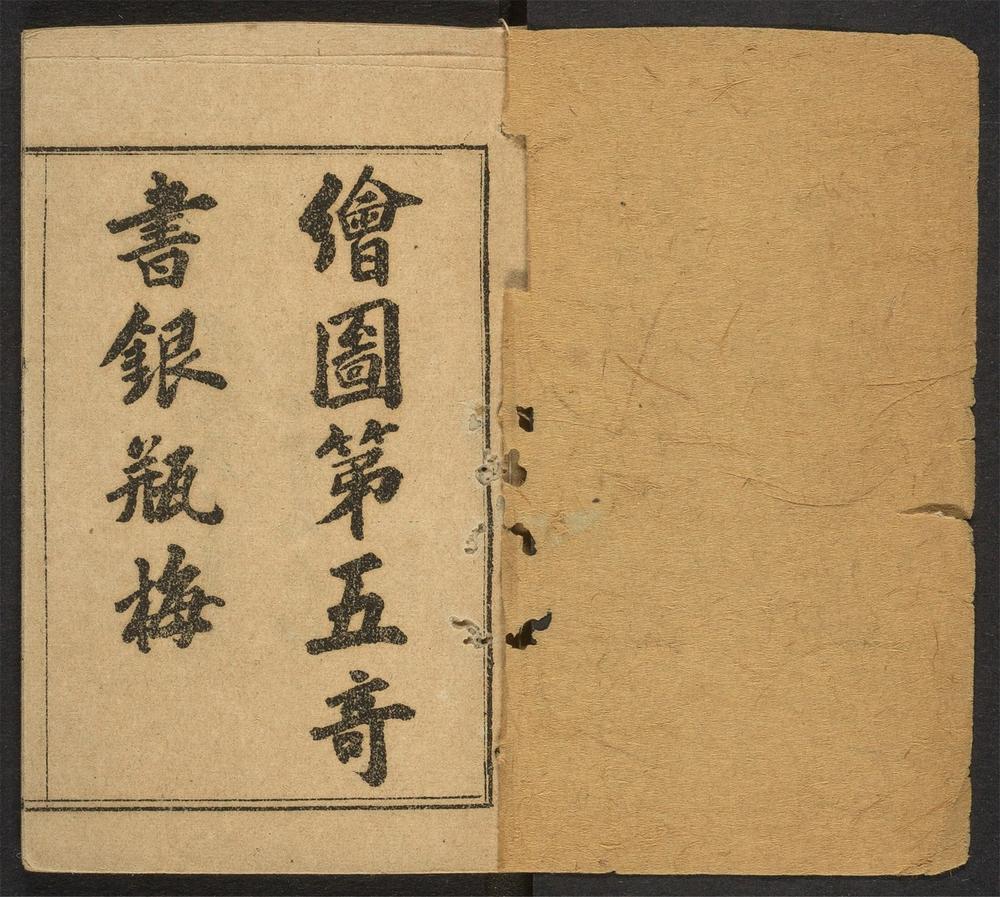 繪圖第五奇
書銀瓶梅